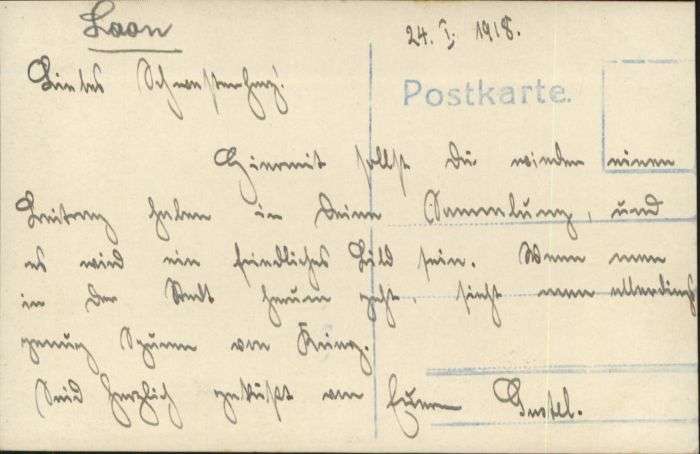 Laon
24. I. 1918.
Postkarte.
Liebes Schwesterherz!
Hiermit sollst Du wieder einen
Beitrag haben in Deine Sammlung, und
es wird ein friedliches Bild sein. Wenn man
in der Stadt herum geht, sieht man allerdings
genug Spuren vom Krieg.
Seid herzlich geküßt von Eurem Gustel.